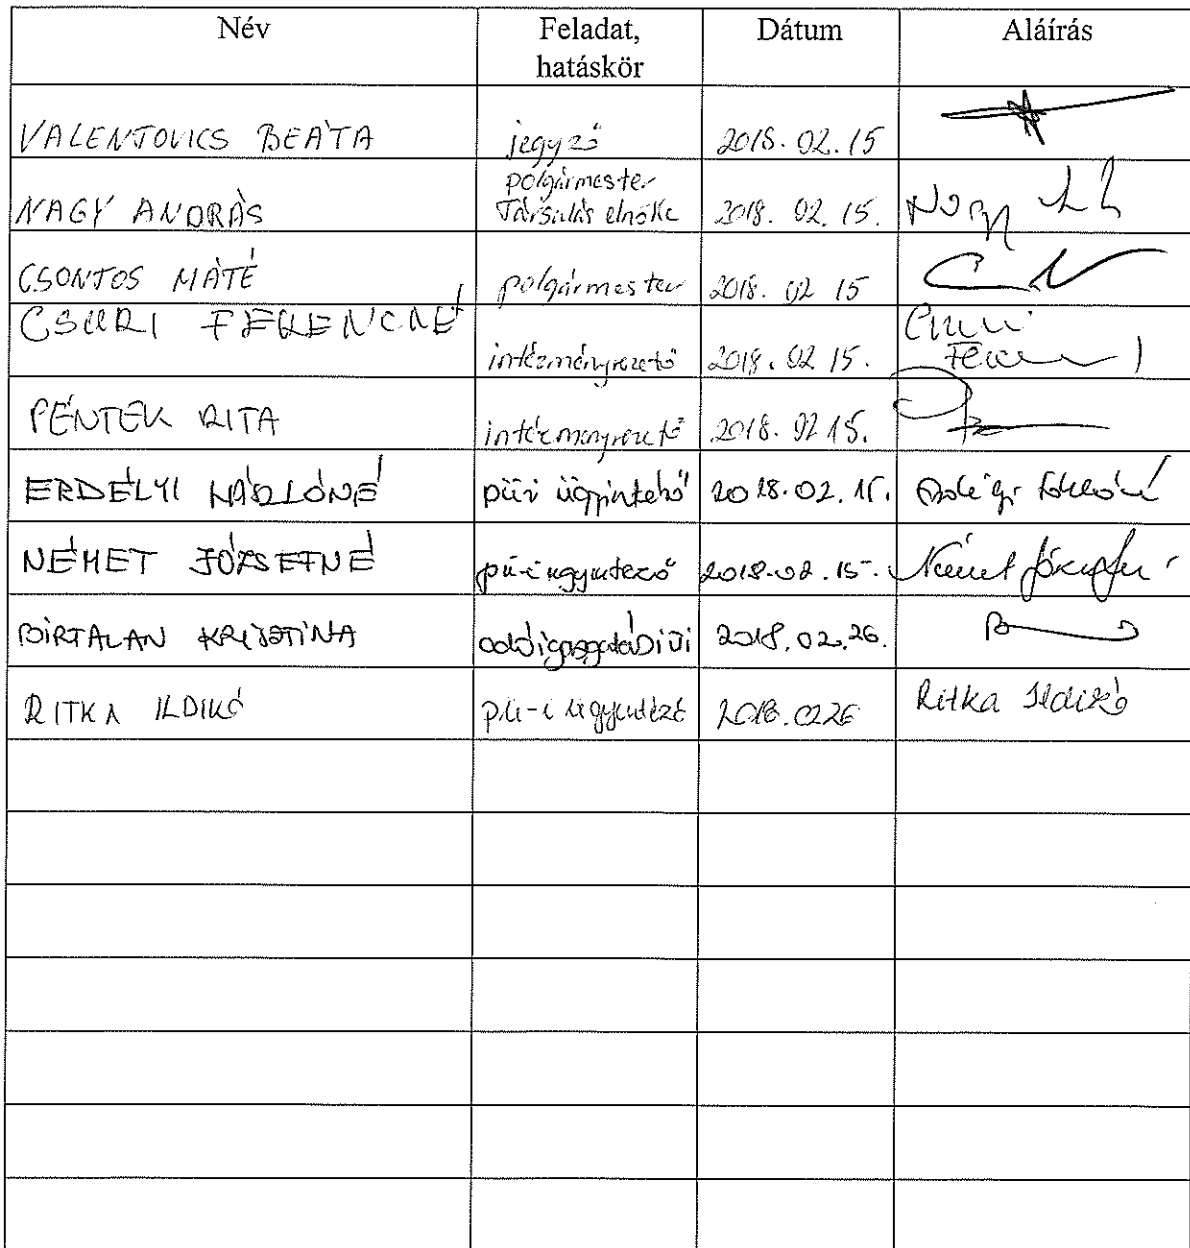 Név Feladat, Dátum Aláírás
hatáskör
VALENTOVICS BEÁTA jegyző 2018. 02. 15
NAGY ANDRÁS polgármester 2018. 02. 15. Nagy
Társulás elnöke
CSONTOS MÁTÉ polgármester 2018. 02 15
CSURI FERENCNÉ intézményvezető 2018. 02 15. Csuri
Ferencné
PÉNTEK RITA intézményvezető 2018. 02 15.
ERDÉLYI LÁSZLÓNÉ püi ügyintéző 2018.02.15. Erdélyi Lászlóné
NÉMET JÓZSEFNÉ pü-i ügyintéző 2018.02.15. Német Józsefné
BIRTALAN KRISZTINA 2018.02.26.
RITKA ILDIKÓ pü-i ügyintéző 2018.0226 Ritka Ildikó